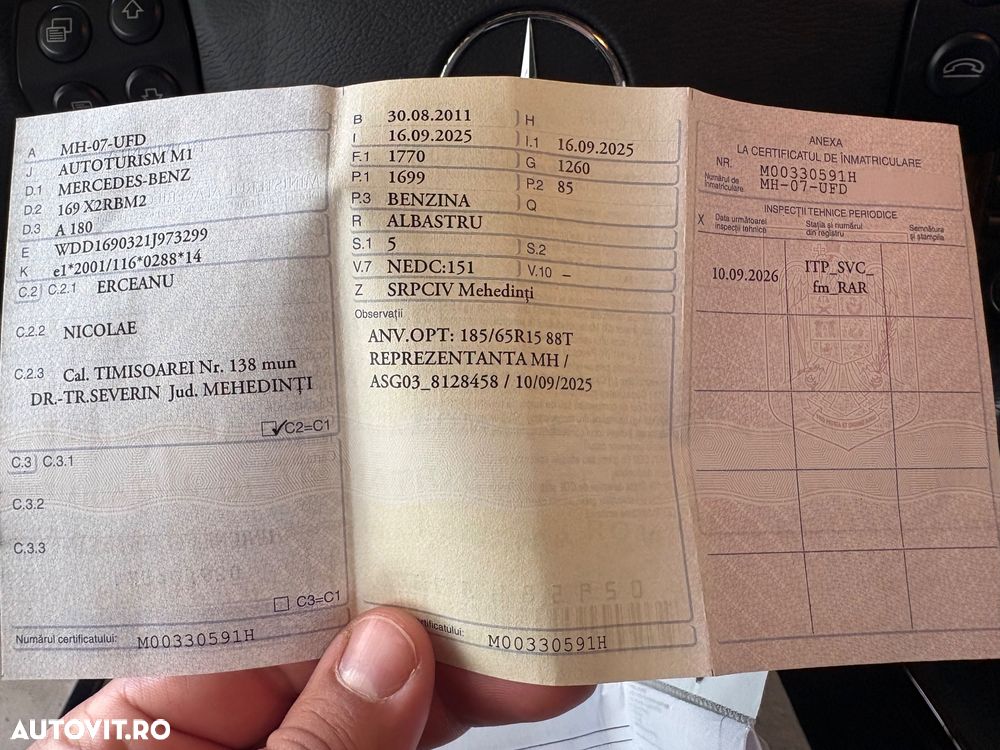 A MH-07-UFD
J AUTOTURISM M1
D.1 MERCEDES-BENZ
D.2 169 X2RBM2
D.3 A 180
E WDD1690321J973299
K e1*2001/116*0288*14
C.2 C.2.1 ERCEANU
C.2.2 NICOLAE
C.2.3 Cal. TIMISOAREI Nr. 138 mun
DR.-TR.SEVERIN Jud. MEHEDINȚI
C2=C1
C.3 C.3.1
C.3.2
C.3.3
C3=C1
Numărul certificatului: M00330591H
B 30.08.2011 H
I 16.09.2025 I.1 16.09.2025
F.1 1770 G 1260
P.1 1699 P.2 85
P.3 BENZINA Q
R ALBASTRU
S.1 5 S.2
V.7 NEDC:151 V.10 –
Z SRPCIV Mehedinți
Observații
ANV.OPT: 185/65R15 88T
REPREZENTANTA MH /
ASG03_8128458 / 10/09/2025
certificatului: M00330591H
ANEXA
LA CERTIFICATUL DE ÎNMATRICULARE
NR. M00330591H
Numărul de
înmatriculare MH-07-UFD
INSPECȚII TEHNICE PERIODICE
X Data următoarei
inspecții tehnice
Stația și numărul
din registru
Semnătura
și ștampila
10.09.2026 ITP_SVC_
fm_RAR
AUTOVIT.RO